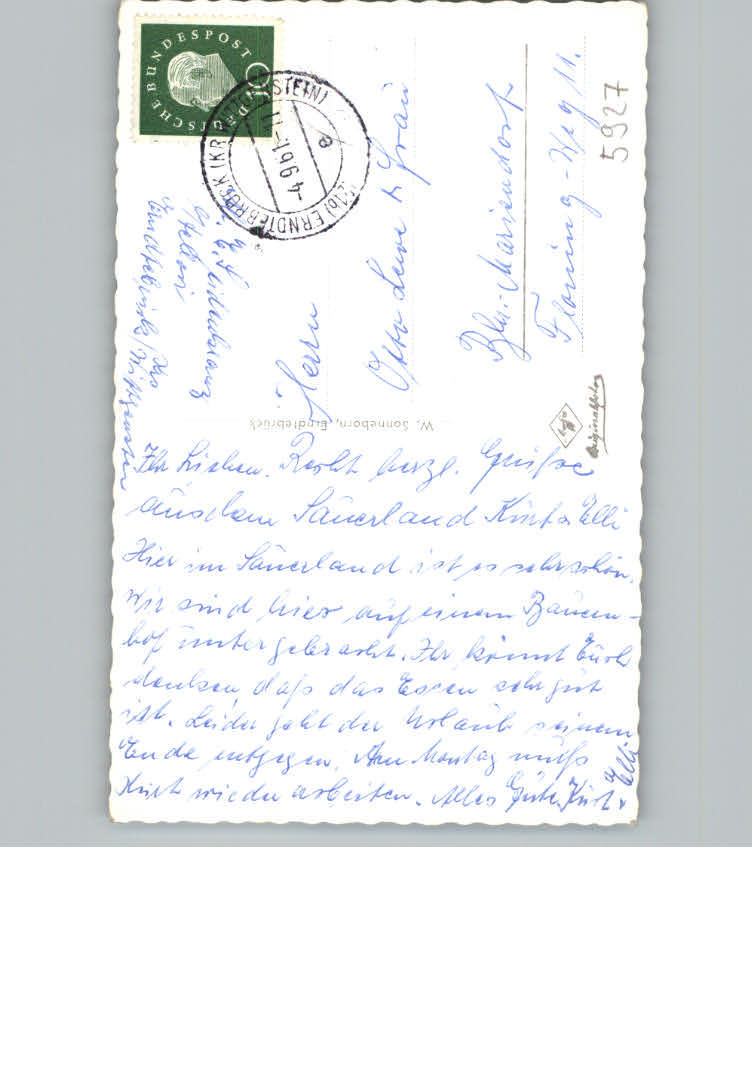 DEUTSCHE BUNDESPOST
(21b) ERNDTEBRÜCK (KR WITTGENSTEIN)
-4.9.61.-17
a
Erndtebrück / Krs
Wittgenstein
Herrn
Otto & Frau
Bln.-Mariendorf
Weg 11.
5927
W. Sonneborn, Erndtebrück
Originalfoto
Ihr Lieben. Recht herzl. Grüße
aus dem Sauerland Kurt & Elli
Hier im Sauerland ist es sehr schön.
Wir sind hier auf einem Bauern-
hof untergebracht. Ihr könnt Euch
denken daß das Essen sehr gut
ist. Leider geht der Urlaub seinem
Ende entgegen. Am Montag muß
Kurt wieder arbeiten. Alles Gute Kurt & Elli